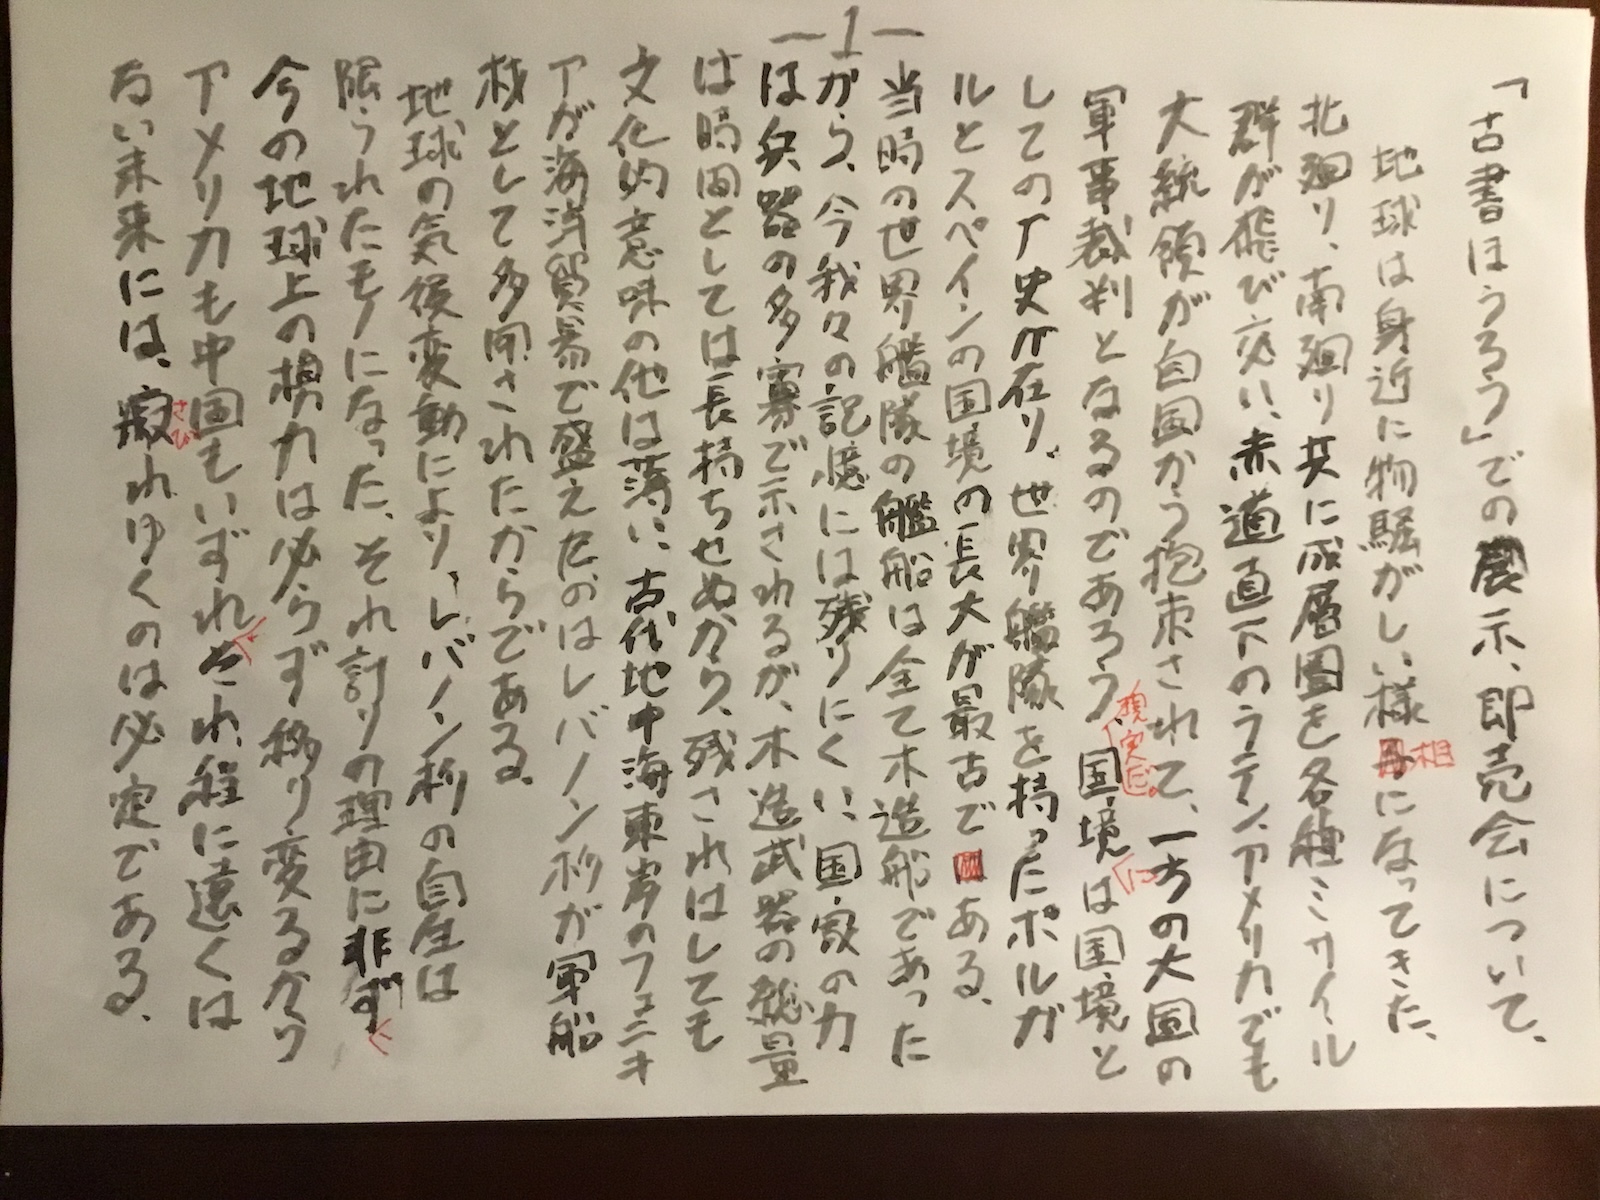 ―1―
「古書ほうろう」での展示、即売会について、
地球は身近に物騒がしい様相になってきた、
北廻り、南廻り共に成層圏を各種ミサイル
群が飛び交い、赤道直下のラテンアメリカでも
大統領が自国から拘束されて、一方の大国の
軍事裁判となるのであろう、現実だ。国境には国境と
しての厂史が在り、世界艦隊を持ったポルガ
ルとスペインの国境の長大が最古である、
当時の世界艦隊の艦船は全て木造船であった
がら、今我々の記憶には残りにくい、国家の力
は兵器の多寡で示されるが、木造武器の総量
は時間としては長持ちせぬから、残されはしても
文化的意味の他は薄い、古代地中海東岸のフェニキ
アが海洋貿易で盛えたのはレバノン杉が軍船
材として多用されたからである、
地球の気候変動により、レバノン杉の自生は
限られたモノになった、それ討りの理由に非ずだ
今の地球上の権力は必らず移り変るがワ
アメリカも中国もいずれ、それ程に遠くは
ない未来には、寂れゆくのは必定である、
さび